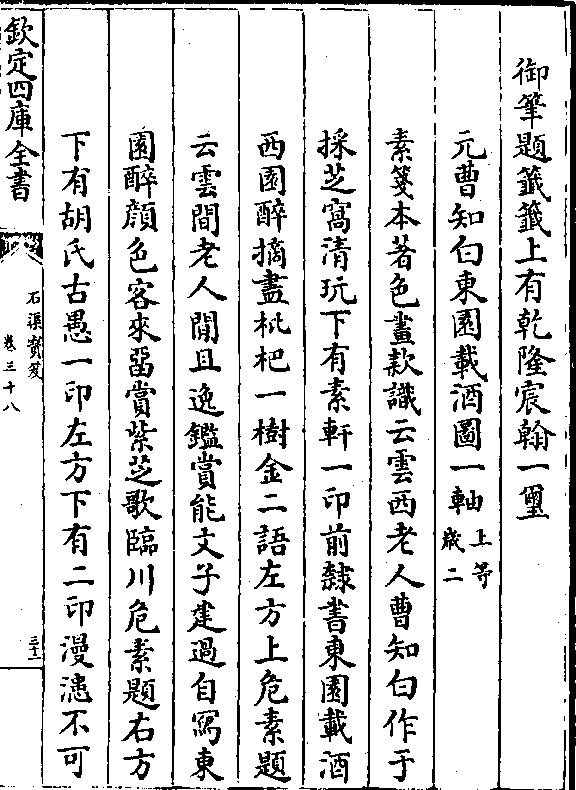 御筆題籤籤上有乾隆宸翰一璽
元曹知白東園載酒圖一軸上等
歲二
素箋本著色畫款識云雲西老人曹知白作于
採芝窩清玩下有素軒一印前隸書東園載酒
西園醉摘盡枇杷一樹金二語左方上危素題
云雲間老人閒且逸鑑賞能文子建過自寫東
園醉顔色客來畱賞紫芝歌臨川危素題右方
下有胡氏古愚一印左方下有二印漫漶不可
欽定四庫全書
石渠寳笈
卷三十八